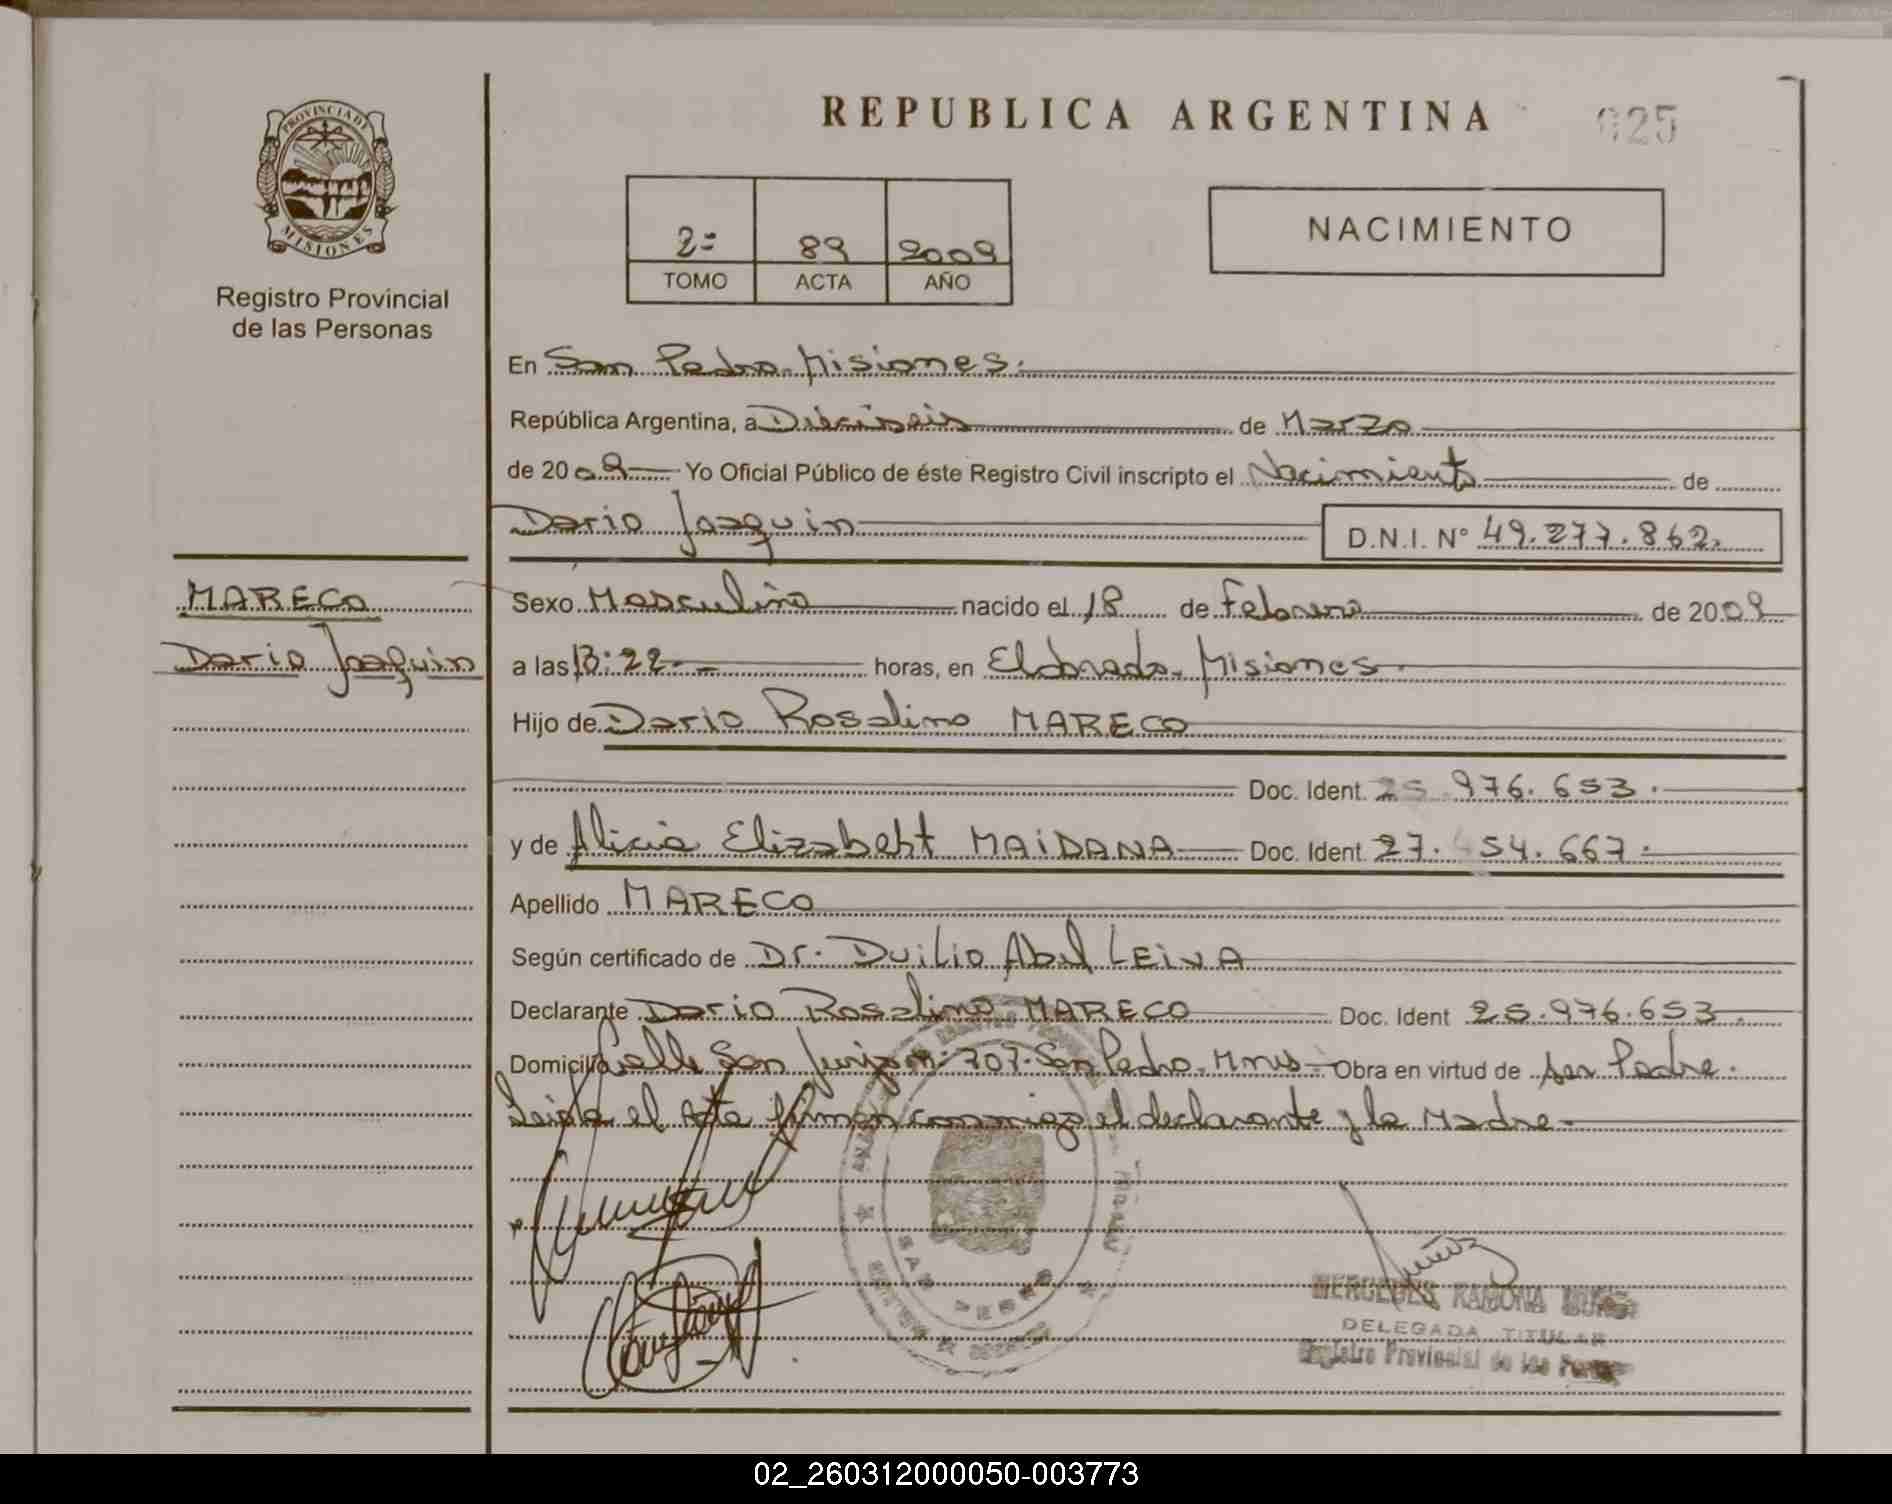 REPUBLICA ARGENTINA
025
PROVINCIA DE
MISIONES
Registro Provincial
de las Personas
2º 89 2009
TOMO ACTA AÑO
NACIMIENTO
En San Pedro. Misiones.
República Argentina, a Dieciseis de Marzo
de 2009 Yo Oficial Público de éste Registro Civil inscripto el Nacimiento de
Dario Joaquin D.N.I. Nº 49.277.862.
MARECO
Dario Joaquin
Sexo Masculino nacido el 18 de Febrero de 2009
a las 13:22.- horas, en Eldorado. Misiones.
Hijo de Dario Rosalino MARECO
Doc. Ident. 25.976.653.
y de Alicia Elizabeht MAIDANA Doc. Ident. 27. 54.667.
Apellido MARECO
Según certificado de Dr. Duilio Abel LEIVA
Declarante Dario Rosalino MARECO Doc. Ident 25.976.653.
Domicilio Calle San 707. San Pedro. Mnes Obra en virtud de ser Padre.
Leida el Acta firman conmigo el declarante y la Madre
SAN PEDRO
MERCEDES RAMONA MUÑOZ
DELEGADA TITULAR
Registro Provincial de las
02_260312000050-003773